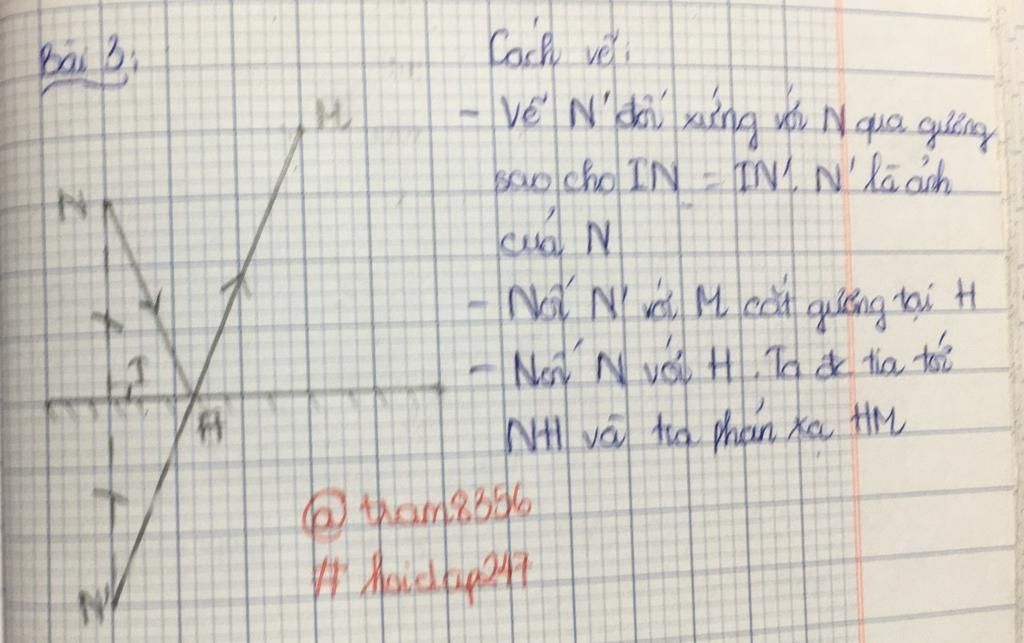 Bài 3:
Cách vẽ:
- Vẽ N' đối xứng với N qua gương
sao cho IN = IN'. N' là ảnh
của N
- Nối N' với M cắt gương tại H
- Nối N với H. Ta đc tia tới
NH và tia phản xạ HM
M
N
I
H
N'
@ tram8356
# hoidap247